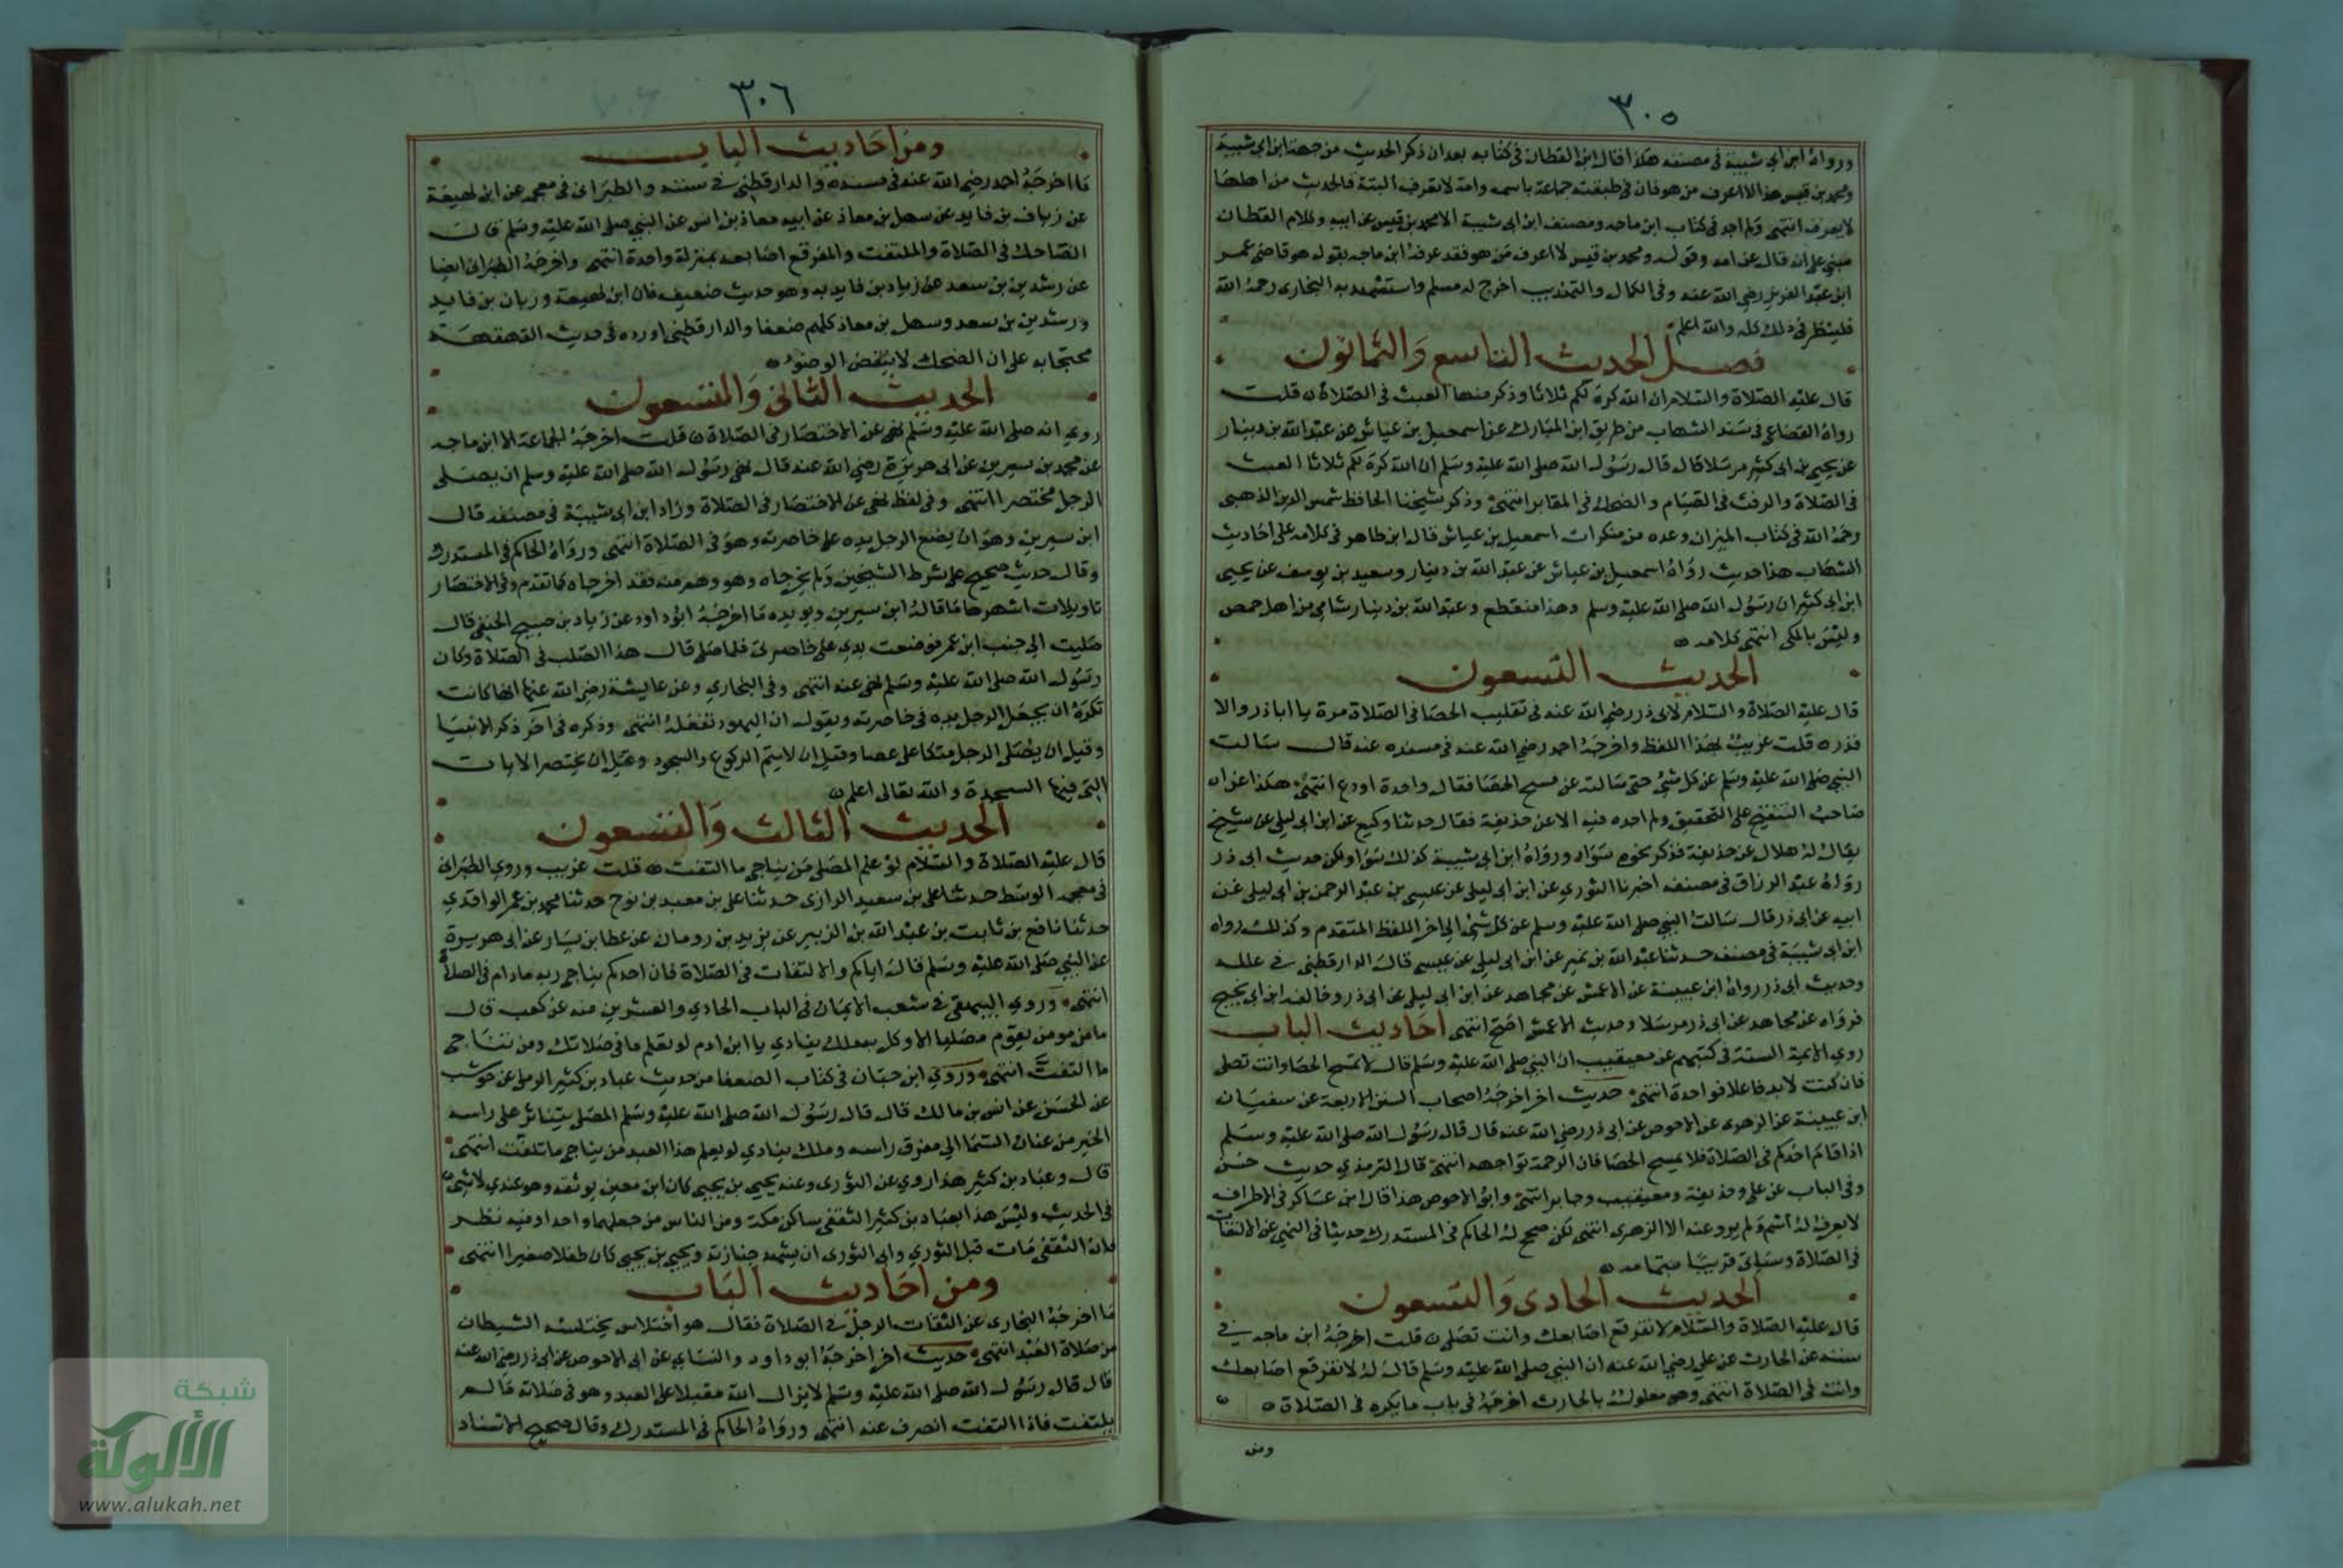 ٣٠٥
ورواه ابن ابي شيبة في مصنفه هكذا قال ابن القطان في كتابه بعد ان ذكر الحديث من جهة ابن ابي شيبة
ومحمد بن قيس هذا لا اعرف من هو فان في طبقته جماعة باسمه وامه لا تعرف البتة فالحديث من اجلها
لا يعرف انتهى ولم اجد في كتاب ابن ماجه ومصنف ابن ابي شيبة الا محمد بن قيس عن ابيه وكلام القطان
مبني على انه قال عن امه وقوله ومحمد بن قيس لا اعرف من هو فقد عرفه ابن ماجه بقوله هو قاضي عمر
ابن عبد العزيز رضي الله عنه وفي الكمال والتهذيب اخرج له مسلم واستشهد به البخاري رحمه الله
فلينظر في ذلك كله والله اعلم
فصل الحديث التاسع والثمانون
قال عليه الصلاة والسلام ان الله كره لكم ثلاثا وذكر منها العبث في الصلاة قلت
رواه القضاعي في سند الشهاب من طريق ابن المبارك عن اسمعيل بن عياش عن عبد الله بن دينار
عن يحيى بن ابي كثير مرسلا قال قال رسول الله صلى الله عليه وسلم ان الله كره لكم ثلاثا العبث
في الصلاة والرفث في الصيام والضحك في المقابر انتهى وذكر شيخنا الحافظ شمس الدين الذهبي
رحمه الله في كتاب الميزان وعده من منكرات اسمعيل بن عياش قال ابن طاهر في كلامه على احاديث
الشهاب هذا حديث رواه اسمعيل بن عياش عن عبد الله بن دينار وسعيد بن يوسف عن يحيى
ابن ابي كثير ان رسول الله صلى الله عليه وسلم وهذا منقطع وعبد الله بن دينار شامي من اهل حمص
وليس بالمكي انتهى كلامه
الحديث التسعون
قال عليه الصلاة والسلام لابي ذر رضي الله عنه في تقليب الحصا في الصلاة مرة يا ابا ذر والا
فذره قلت غريب بهذا اللفظ واخرجه احمد رضي الله عنه في مسنده عنه قال سالت
النبي صلى الله عليه وسلم عن كل شيء حتى سالته عن مسح الحصا فقال واحدة او دع انتهى هكذا عزاه
صاحب التنقيح على التحقيق ولم اجده فيه الا عن حذيفة فقال حدثنا وكيع عن ابن ابي ليلى عن شيخ
يقال له هلال عن حذيفة فذكر نحوه سواء ورواه ابن ابي شيبة كذلك سوا ولكن حديث ابي ذر
رواه عبد الرزاق في مصنفه اخبرنا الثوري عن ابن ابي ليلى عن عيسى بن عبد الرحمن بن ابي ليلى عن
ابيه عن ابي ذر قال سالت النبي صلى الله عليه وسلم عن كل شيء الى اخر اللفظ المتقدم وكذلك رواه
ابن ابي شيبة في مصنفه حدثنا عبد الله بن نمير عن ابن ابي ليلى عن عيسى قال الدارقطني في علله
وحديث ابي ذر رواه ابن عيينة عن الاعمش عن مجاهد عن ابن ابي ليلى عن ابي ذر وخالفه ابن ابي نجيح
فرواه عن مجاهد عن ابي ذر مرسلا وحديث الاعمش اصح انتهى احاديث الباب
روى الائمة الستة في كتبهم عن معيقيب ان النبي صلى الله عليه وسلم قال لا تمسح الحصا وانت تصلى
فان كنت لا بد فاعلا فواحدة انتهى حديث اخر اخرجه اصحاب السنن الاربعة عن سفيان
ابن عيينة عن الزهري عن ابي الاحوص عن ابي ذر رضي الله عنه قال قال رسول الله صلى الله عليه وسلم
اذا قام احدكم في الصلاة فلا يمسح الحصا فان الرحمة تواجهه انتهى قال الترمذي حديث حسن
وفي الباب عن علي وحذيفة ومعيقيب وجابر انتهى وابو الاحوص هذا قال ابن عساكر في الاطراف
لا يعرف له اسم ولم يرو عنه الا الزهري انتهى لكن صحح له الحاكم في المستدرك حديثا في النهي عن الالتفات
في الصلاة وسياتي قريبا بتمامه
الحديث الحادى والتسعون
قال عليه الصلاة والسلام لا تفرقع اصابعك وانت تصلى قلت اخرجه ابن ماجه في
سننه عن الحارث عن علي رضي الله عنه ان النبي صلى الله عليه وسلم قال له لا تفرقع اصابعك
وانت في الصلاة انتهى وهو معلول بالحارث اخرجه في باب ما يكره في الصلاة
ومن
٣٠٦
ومن احاديث الباب
ما اخرجه احمد رضي الله عنه في مسنده والدارقطني في سننه والطبراني في معجمه عن ابن لهيعة
عن زبان بن فايد عن سهل بن معاذ عن ابيه معاذ بن انس عن النبي صلى الله عليه وسلم قال
الضاحك في الصلاة والملتفت والمفرقع اصابعه بمنزلة واحدة انتهى واخرجه الطبراني ايضا
عن رشدين بن سعد عن زياد بن فايد به وهو حديث ضعيف فان ابن لهيعة وزبان بن فايد
ورشدين بن سعد وسهل بن معاذ كلهم ضعفا والدارقطني اورده في حديث القهقهة
محتجا به على ان الضحك لا ينقض الوضوء
الحديث الثاني والتسعون
روي انه صلى الله عليه وسلم نهى عن الاختصار في الصلاة قلت اخرجه الجماعة الا ابن ماجه
عن محمد بن سيرين عن ابي هريرة رضي الله عنه قال نهى رسول الله صلى الله عليه وسلم ان يصلى
الرجل مختصرا انتهى وفي لفظ نهى عن الاختصار في الصلاة وزاد ابن ابي شيبة في مصنفه قال
ابن سيرين وهو ان يضع الرجل يده على خاصرته وهو في الصلاة انتهى ورواه الحاكم في المستدرك
وقال حديث صحيح على شرط الشيخين ولم يخرجاه وهو وهم منه فقد اخرجاه كما تقدم وفي الاختصار
تاويلات اشهرها ما قاله ابن سيرين ويويده ما اخرجه ابو داود عن زياد بن صبيح الحنفي قال
صليت الى جنب ابن عمر فوضعت يدي على خاصرتي فلما صلى قال هذا الصلب في الصلاة وكان
رسول الله صلى الله عليه وسلم نهى عنه انتهى وفي البخاري وعن عايشة رضي الله عنها انها كانت
تكره ان يجعل الرجل يده في خاصرته ويقول ان اليهود تفعله انتهى وذكره في اخر ذكر الانبيا
وقيل ان يصلى الرجل متكا على عصا وقيل ان لا يتم الركوع والسجود وقيل ان يختصر الايات
التي فيها السجدة والله تعالى اعلم
الحديث الثالث والتسعون
قال عليه الصلاة والسلام لو علم المصلى من يناجي ما التفت قلت غريب وروى الطبراني
في معجمه الوسط حدثنا علي بن سعيد الرازى حدثنا علي بن معبد بن نوح حدثنا محمد بن عمر الواقدي
حدثنا نافع بن ثابت بن عبد الله بن الزبير عن يزيد بن رومان عن عطا بن يسار عن ابي هريرة
عن النبي صلى الله عليه وسلم قال اياكم والالتفات في الصلاة فان احدكم يناجي ربه مادام في الصلاة
انتهى وروي البيهقي في شعب الايمان في الباب الحادي والعشرين منه عن كعب قال
ما من مومن يقوم مصليا الا وكل به ملك ينادي يا ابن ادم لو تعلم ما في صلاتك ومن تناجي
ما التفت انتهى وروى ابن حبان في كتاب الضعفا من حديث عباد بن كثير الرملي عن حوشب
عن الحسن عن انس بن مالك قال قال رسول الله صلى الله عليه وسلم المصلى يتناثر على راسه
الخير من عنان السما الى مفرق راسه وملك ينادي لو يعلم هذا العبد من يناجي ما تلفت انتهى
قال وعباد بن كثير هذا روي عن الثورى وعنه يحيى بن يحيى كان ابن معين يوثقه وهو عندي لا شيء
في الحديث وليس هذا بعباد بن كثير الثقفي ساكن مكة ومن الناس من جعلهما واحدا وفيه نظر
فان الثقفي مات قبل الثوري وابى الثورى ان يشهد جنازته ويحيى بن يحيى كان طفلا صغيرا انتهى
ومن احاديث الباب
ما اخرجه البخاري عن التفات الرجل في الصلاة فقال هو اختلاس يختلسه الشيطان
من صلاة العبد انتهى حديث اخر اخرجه ابو داود والنساي عن ابي الاحوص عن ابي ذر رضي الله عنه
قال قال رسول الله صلى الله عليه وسلم لا يزال الله مقبلا على العبد وهو في صلاته ما لم
يلتفت فاذا التفت انصرف عنه انتهى ورواه الحاكم في المستدرك وقال صحيح الاسناد
شبكة
الألوكة
www.alukah.net